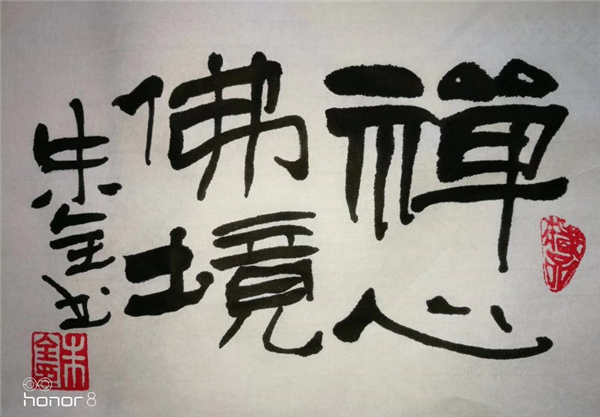 禅心
佛境
朱金书
honor 8